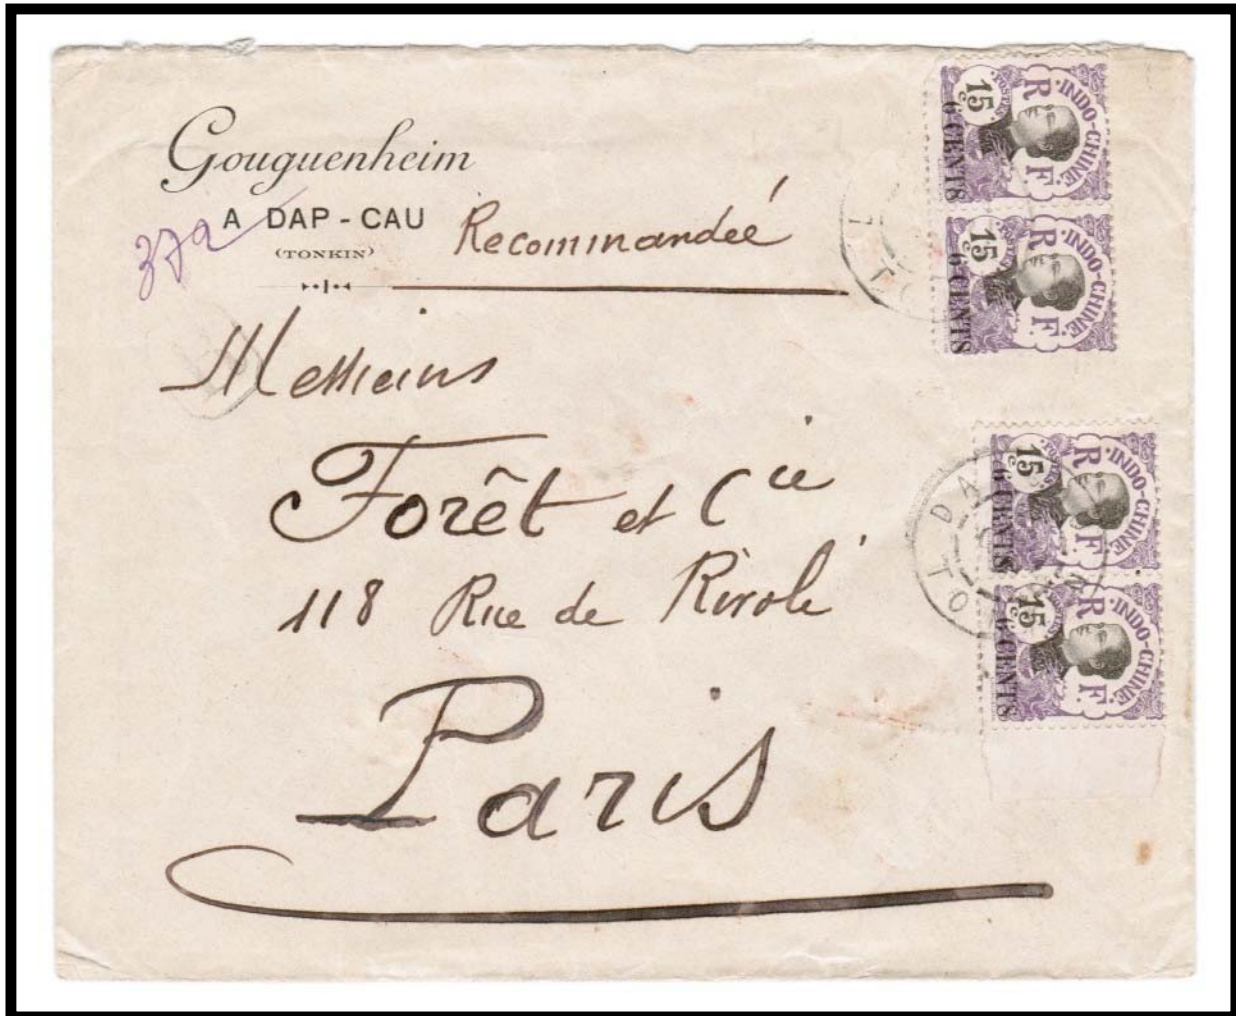 Gouguenheim
A DAP - CAU
(TONKIN)
372
Recommandéé
Messieurs
Forêt et Cie
118 Rue de Rivoli
Paris
INDO-CHINE
R F
POSTES
15 c
6 CENTS
INDO-CHINE
R F
POSTES
15 c
6 CENTS
INDO-CHINE
R F
POSTES
15 c
6 CENTS
INDO-CHINE
R F
15
6 CENTS